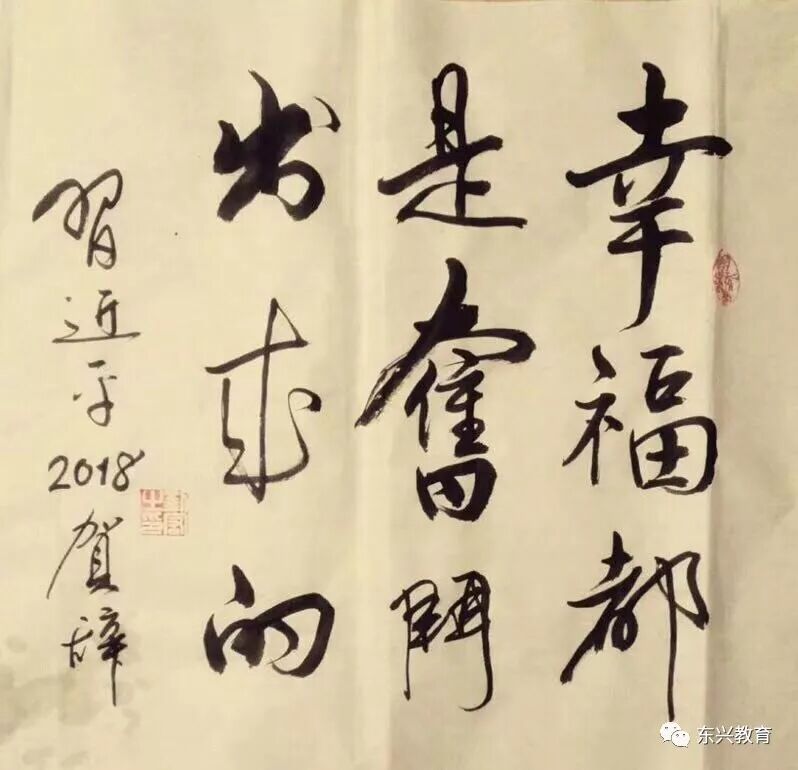 幸福都
是奮鬥
出来的
習近平2018賀辞
东兴教育